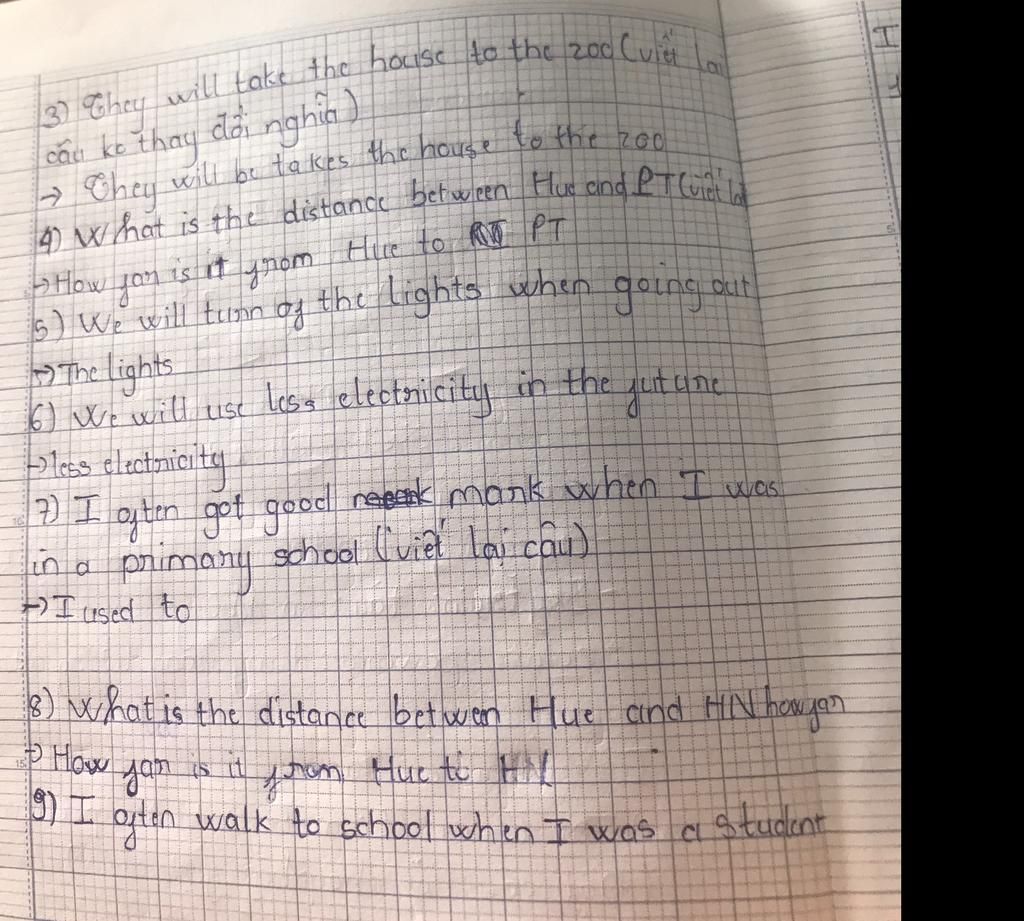 3) They will take the house to the zoo (viết lại
câu ko thay đổi nghĩa)
→ They will be takes the house to the zoo
4) What is the distance between Hue and PT (viết lại
→ How far is it from Hue to PT
5) We will turn of the lights when going out
→ The lights
6) We will use less electricity in the future
→ less electricity
7) I often got good mark when I was
in a primary school (viết lại câu)
→ I used to
8) What is the distance betwen Hue and HN how far
→ How far is it from Hue to HN
9) I often walk to school when I was a student
I